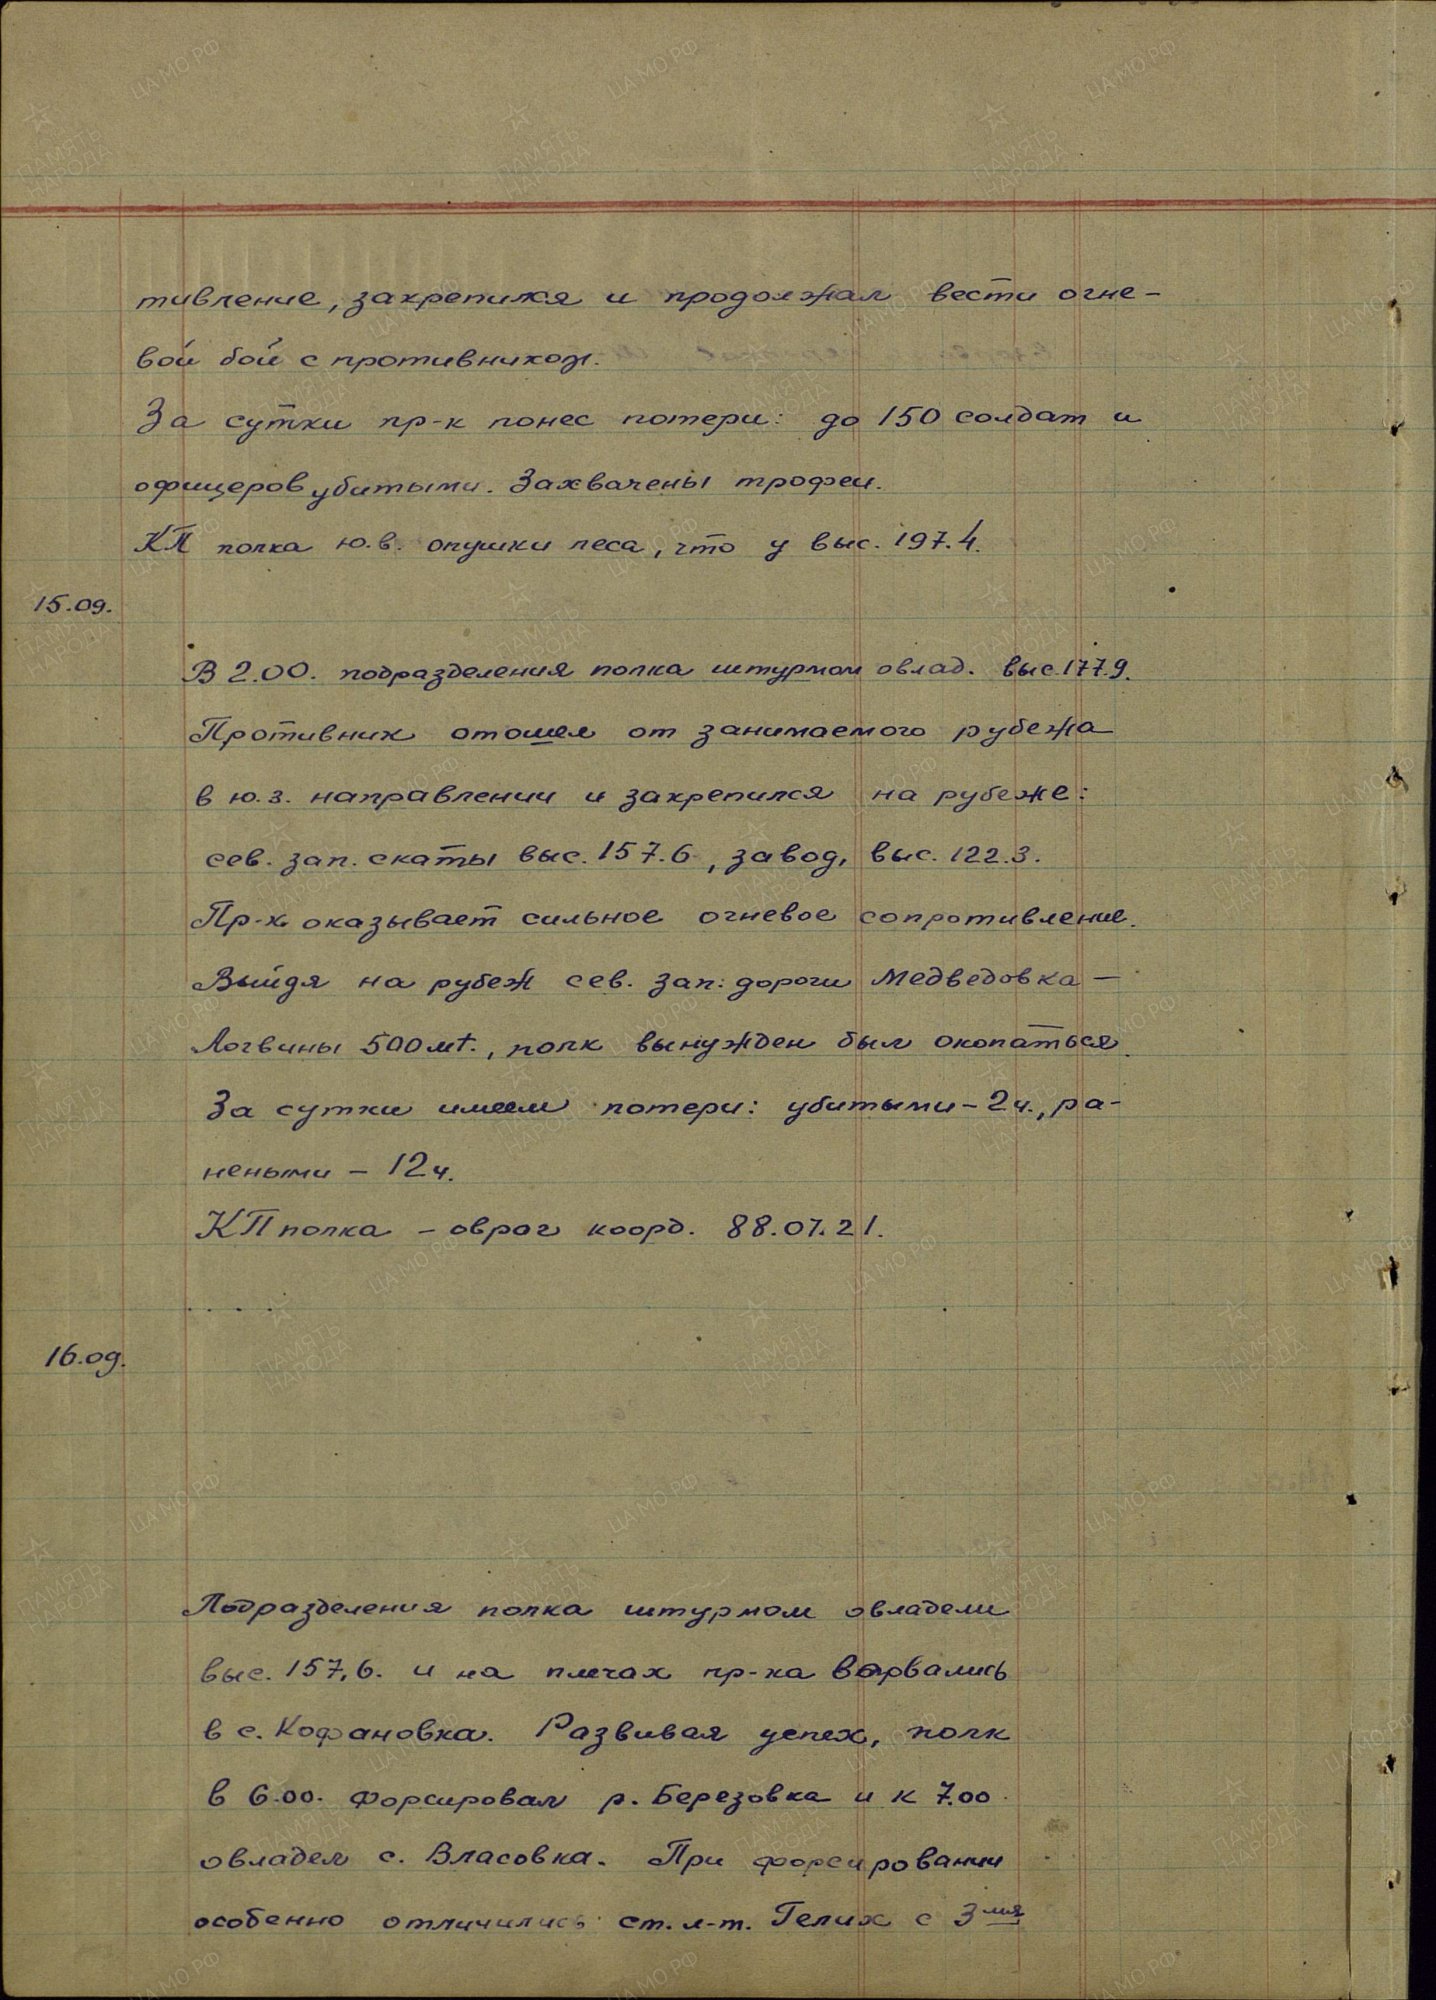 тивление, закрепился и продолжал вести огне-
вой бой с противником.
За сутки пр-к понес потери: до 150 солдат и
офицеров убитыми. Захвачены трофеи.
КП полка ю.в. опушки леса, что у выс. 197.4.
15.09.
В 2.00. подразделения полка штурмом овлад. выс.177.9.
Противник отошел от занимаемого рубежа
в ю.з. направлении и закрепился на рубеже:
сев. зап. скаты выс. 157.6, завод, выс. 122.3.
Пр-к оказывает сильное огневое сопротивление.
Выйдя на рубеж сев. зап. дороги Медведовка —
Логвины 500 мт., полк вынужден был окопаться.
За сутки имеем потери: убитыми – 2ч., ра-
неными – 12ч.
КП полка – овраг коорд. 88.07.21.
16.09.
Подразделения полка штурмом овладели
выс. 157,6. и на плечах пр-ка ворвались
в с. Кофановка. Развивая успех, полк
в 6.00. форсировал р. Березовка и к 7.00
овладел с. Власовка. При форсировании
особенно отличились ст. л-т. Гелих с 3мя
ЦА МО РФ
ПАМЯТЬ НАРОДА